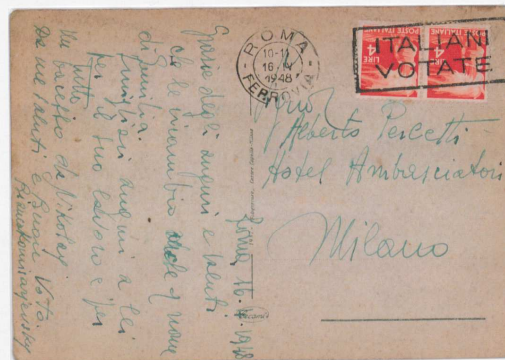 ROMA
10-11
16 IV
1948
FERROVIA
POSTE ITALIANE
POSTE ITALIANE
LIRE 4
LIRE 4
ITALIANI
VOTATE
Alberto Percetti
Hotel Ambasciatori
Milano
Roma, 16. 4. 1948
Grazie degli auguri e saluti
che le ricambio anche a nome
di famiglia.
I migliori auguri a lei
per il suo lavoro e per
tutto.
Un bacetto da Nikolay
Da me saluti e Buon Voto.